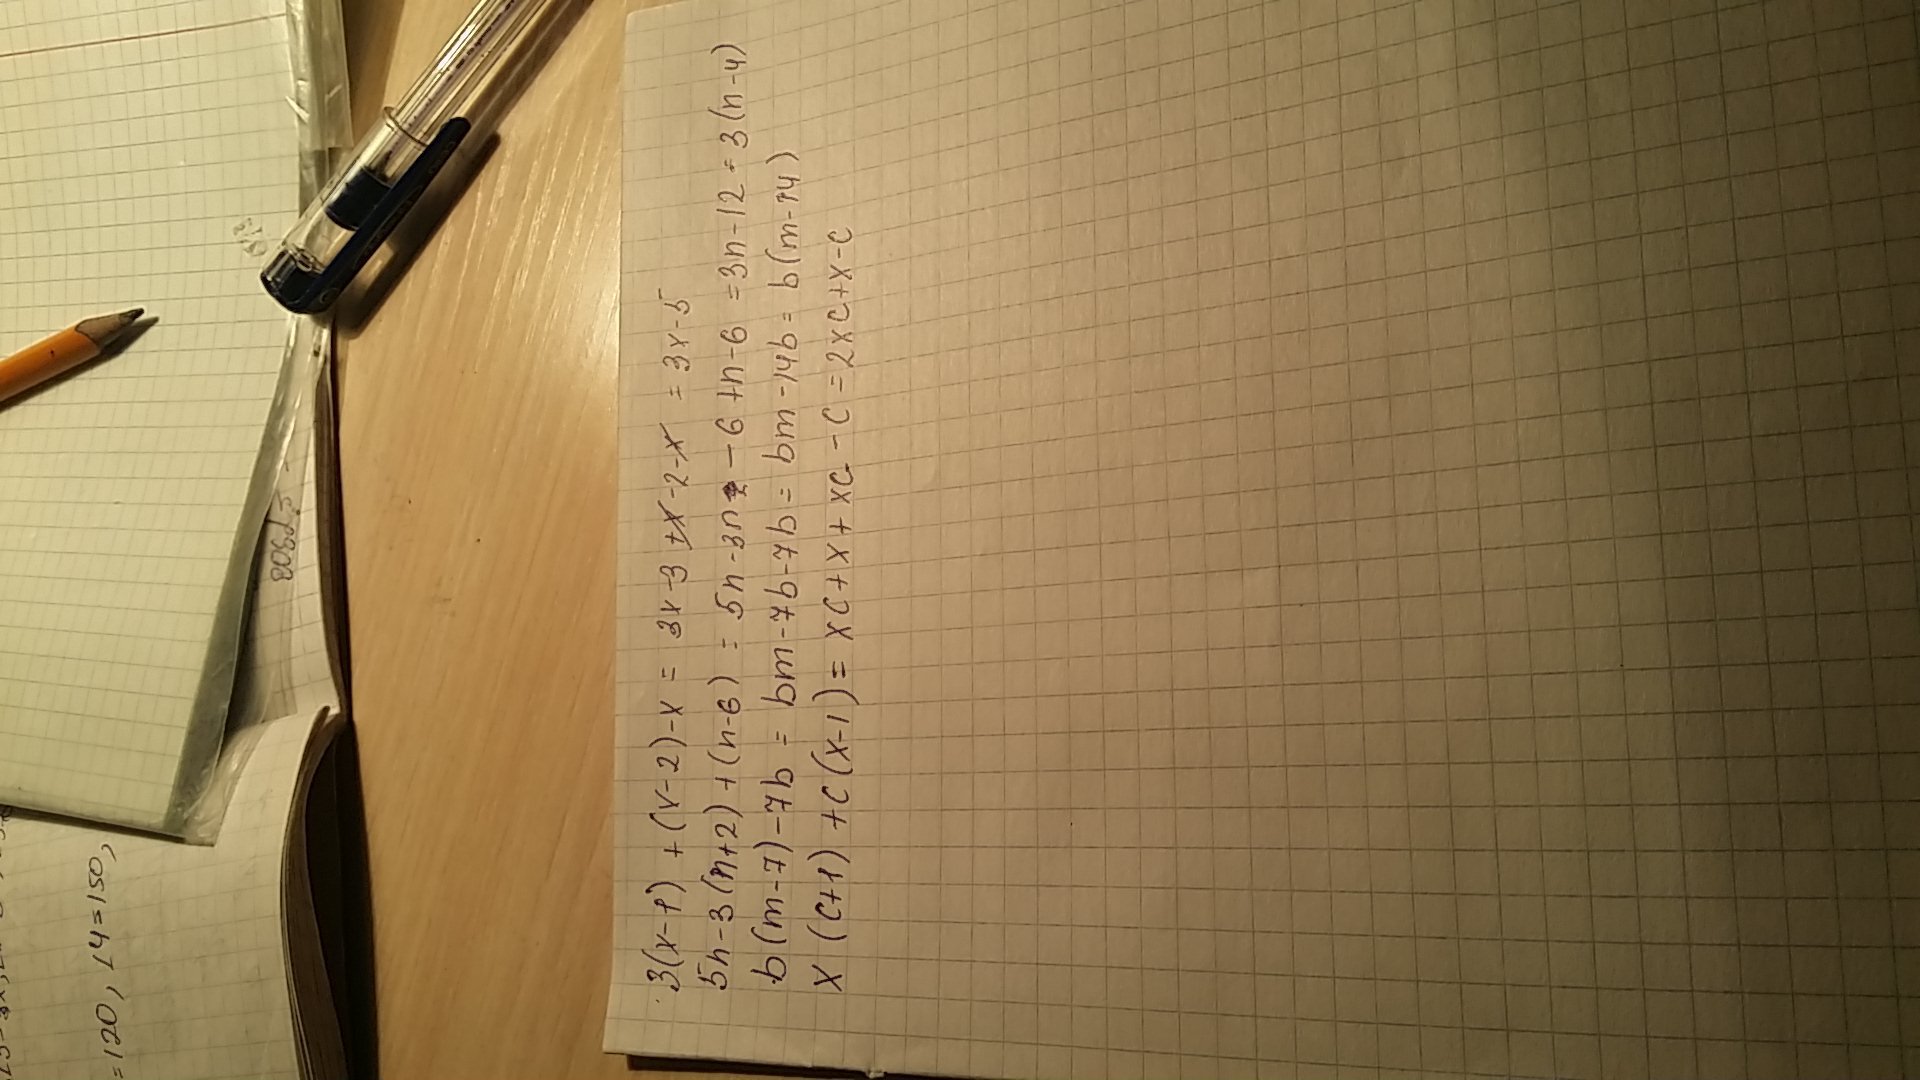 3(x-1)+(x-2)-x = 3x-3+x-2-x = 3x-5
5n-3(n+2)+(n-6) = 5n-3n-6+n-6 = 3n-12 = 3(n-4)
b(m-7)-7b = bm-7b-7b = bm-14b = b(m-14)
x(c+1)+c(x-1) = xc+x+xc-c = 2xc+x-c
=120, L4=150,